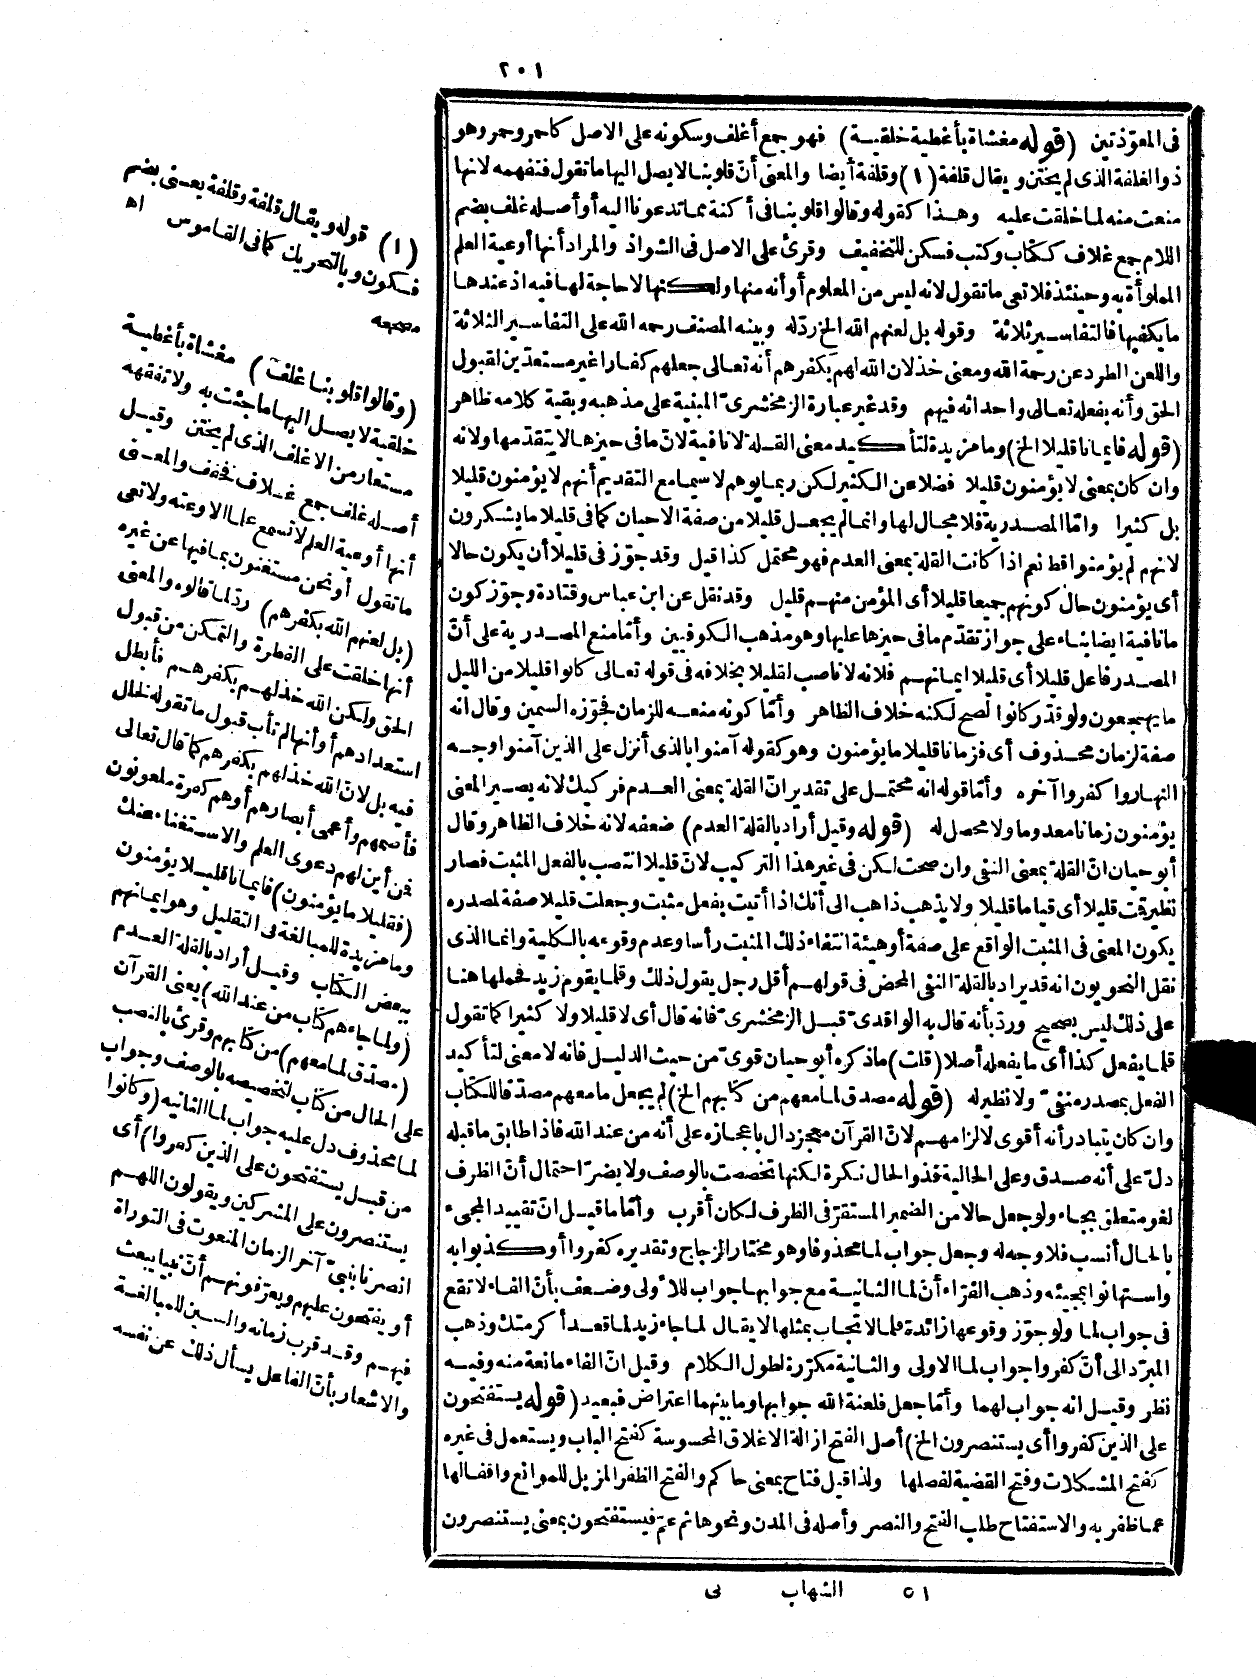 ٢٠١
فى المعوّذتين (قوله مغشاة بأغطية خلقية) فهو جمع أغلف وسكونه على الاصل كاحمر وحمر وهو
ذو الغلفة الذى لم يختن ويقال قلفة (١) وقلفة أيضا والمعنى أنّ قلوبنا لا يصل اليها ما تقول فتفهمه لانها
منعت منه لما خلقت عليه وهذا كقوله وقالوا قلوبنا فى أكنة مما تدعونا اليه أو أصله غلف بضم
اللام جمع غلاف ككتاب وكتب فسكن للتخفيف وقرئ على الاصل فى الشواذ والمراد أنها أوعية العلم
المملوأة به وحينئذ فلا تعى ما تقول لانه ليس من المعلوم أو أنه منها ولكنها لا حاجة لها فيه اذ عندها
ما يكفيها فالتفاسير ثلاثة وقوله بل لعنهم الله الخ ردّ له وبينه المصنف رحمه الله على التفاسير الثلاثة
واللعن الطرد عن رحمة الله ومعنى خذلان الله لهم بكفرهم أنه تعالى جعلهم كفارا غير مستعدّين لقبول
الحق وأنه بفعله تعالى واحداثه فيهم وقد غير عبارة الزمخشرى المبنية على مذهبه وبقية كلامه ظاهر
(قوله فايمانا قليلا الخ) وما مزيدة لتأكيد معنى القلة لا نافية لانّ ما فى حيزها لا يتقدّمها ولانه
وان كان بمعنى لا يؤمنون قليلا فضلا عن الكثير لكن ربما يوهم لا سيما مع التقديم أنهم لا يؤمنون قليلا
بل كثيرا وامّا المصدرية فلا مجال لها وانما لم يجعل قليلا من صفة الاحيان كما فى قليلا ما يشكرون
لانهم لم يؤمنوا قط نعم اذا كانت القلة بمعنى العدم فهو محتمل كذا قيل وقد جوّز فى قليلا أن يكون حالا
أى يؤمنون حال كونهم جميعا قليلا أى المؤمن منهم قليل وقد نقل عن ابن عباس وقتادة وجوّز كون
ما نافية ايضا بناء على جواز تقدّم ما فى حيزها عليها وهو مذهب الكوفيين وأمّا منع المصدرية على أنّ
المصدر فاعل قليلا أى قليلا ايمانهم فلانه لا ناصب لقليلا بخلافه فى قوله تعالى كانوا قليلا من الليل
ما يهجعون ولو قدّر كانوا لصح لكنه خلاف الظاهر وأمّا كونه منعه للزمان فجوّزه السمين وقال انه
صفة لزمان محذوف أى فزمانا قليلا ما يؤمنون وهو كقوله آمنوا بالذى أنزل على الذين آمنوا وجه
النهار واكفروا آخره وأمّا قوله انه محتمل على تقدير انّ القلة بمعنى العدم فركيك لانه يصير المعنى
يؤمنون زمانا معدوما ولا محصل له (قوله وقيل أراد بالقلة العدم) ضعفه لانه خلاف الظاهر وقال
أبو حيان انّ القلة بمعنى النفى وان صحت لكن فى غير هذا التركيب لانّ قليلا انتصب بالفعل المثبت فصار
نظير قمت قليلا أى قياما قليلا ولا يذهب ذاهب الى أنك اذا أتيت بفعل مثبت وجعلت قليلا صفة لمصدره
يكون المعنى فى المثبت الواقع على صفة أو هيئة انتفاء ذلك المثبت رأسا وعدم وقوعه بالكلية وانما الذى
نقل النحويون انه قد يراد بالقلة النفى المحض فى قولهم أقل رجل يقول ذلك وقلما يقوم زيد فحملها هنا
على ذلك ليس بصحيح وردّ بأنه قال به الواقدى قبل الزمخشرى فانه قال أى لا قليلا ولا كثيرا كما تقول
قلما يفعل كذا أى ما يفعله أصلا (قلت) ما ذكره أبو حيان قوىّ من حيث الدليل فانه لا معنى لتأكيد
الفعل بمصدر منفىّ ولا نظير له (قوله مصدق لما معهم من كتابهم الخ) لم يجعل ما معهم مصدّقا للكتاب
وان كان يتبادر أنه أقوى لالزامهم لانّ القرآن معجز دال باعجازه على أنه من عند الله فاذا طابق ما قبله
دلّ على أنه صدق وعلى الحالية فذو الحال نكرة لكنها تخصصت بالوصف ولا يضرّ احتمال أنّ الظرف
لغو متعلق بجاء ولو جعل حالا من الضمير المستقرّ فى الظرف لكان أقرب وأمّا ما قيل انّ تقييد المجىء
بالحال أنسب فلا وجه له وجعل جواب لما محذوفا وهو مختار الزجاج وتقديره كفروا أو كذبوا به
واستهانوا بمجيئه وذهب الفرّاء أنّ لما الثانية مع جوابها جواب للاولى وضعف بأنّ الفاء لا تقع
فى جواب لما ولو جوّز وقوعها زائدة فلما لا تجاب بمثلها لا يقال لما جاء زيد لما قعد أكرمتك وذهب
المبرّد الى أنّ كفروا جواب لما الاولى والثانية مكرّرة لطول الكلام وقيل انّ الفاء مانعة منه وفيه
نظر وقيل انه جواب لهما وأمّا جعل فلعنة الله جوابها وما بينهما اعتراض فبعيد (قوله يستفتحون
على الذين كفروا أى يستنصرون الخ) أصل الفتح ازالة الاغلاق المحسوسة كفتح الباب ويستعمل فى غيره
كفتح المشكلات وفتح القضية لفصلها ولذا قيل فتاح بمعنى حاكم والفتح الظفر المزيل للموانع واقفالها
عما ظفر به والاستفتاح طلب الفتح والنصر وأصله فى المدن ونحوها ثم عمّ فيستفتحون بمعنى يستنصرون
(١) قوله ويقال قلفة وقلفة يعنى بضم
فسكون وبالتحريك كما فى القاموس اه
مصححه
(وقالوا قلوبنا غلف) مغشاة بأغطية
خلقية لا يصل اليها ما جئت به ولا تفقهه
مستعار من الاغلف الذى لم يختن وقيل
أصله غلف جمع غلاف فخفف والمعنى
أنها أوعية العلم لا تسمع علما الا وعته ولا تعى
ما تقول أو نحن مستغنون بما فيها عن غيره
(بل لعنهم الله بكفرهم) ردّ لما قالوه والمعنى
أنها خلقت على الفطرة والتمكن من قبول
الحق ولكن الله خذلهم بكفرهم فأبطل
استعدادهم أو أنها لم تأب قبول ما تقوله لخلل
فيه بل لانّ الله خذلهم بكفرهم كما قال تعالى
فأصمهم وأعمى أبصارهم أو هم كفرة ملعونون
فمن أين لهم دعوى العلم والاستغناء عنك
(فقليلا ما يؤمنون) فايمانا قليلا يؤمنون
وما مزيدة للمبالغة فى التقليل وهو ايمانهم
ببعض الكتاب وقيل أراد بالقلة العدم
(ولما جاءهم كتاب من عند الله) يعنى القرآن
(مصدّق لما معهم) من كتابهم وقرئ بالنصب
على الحال من كتاب لتخصيصه بالوصف وجواب
لما محذوف دل عليه جواب لما الثانيه (وكانوا
من قبل يستفتحون على الذين كفروا) أى
يستنصرون على المشركين ويقولون اللهم
انصرنا بنبىّ آخر الزمان المنعوت فى التوراة
أو يفتحون عليهم ويعرّفونهم أنّ نبيا يبعث
فيهم وقد قرب زمانه والسين للمبالغة
والاشعار بأنّ الفاعل يسأل ذلك عن نفسه
٥١ الشهاب نى